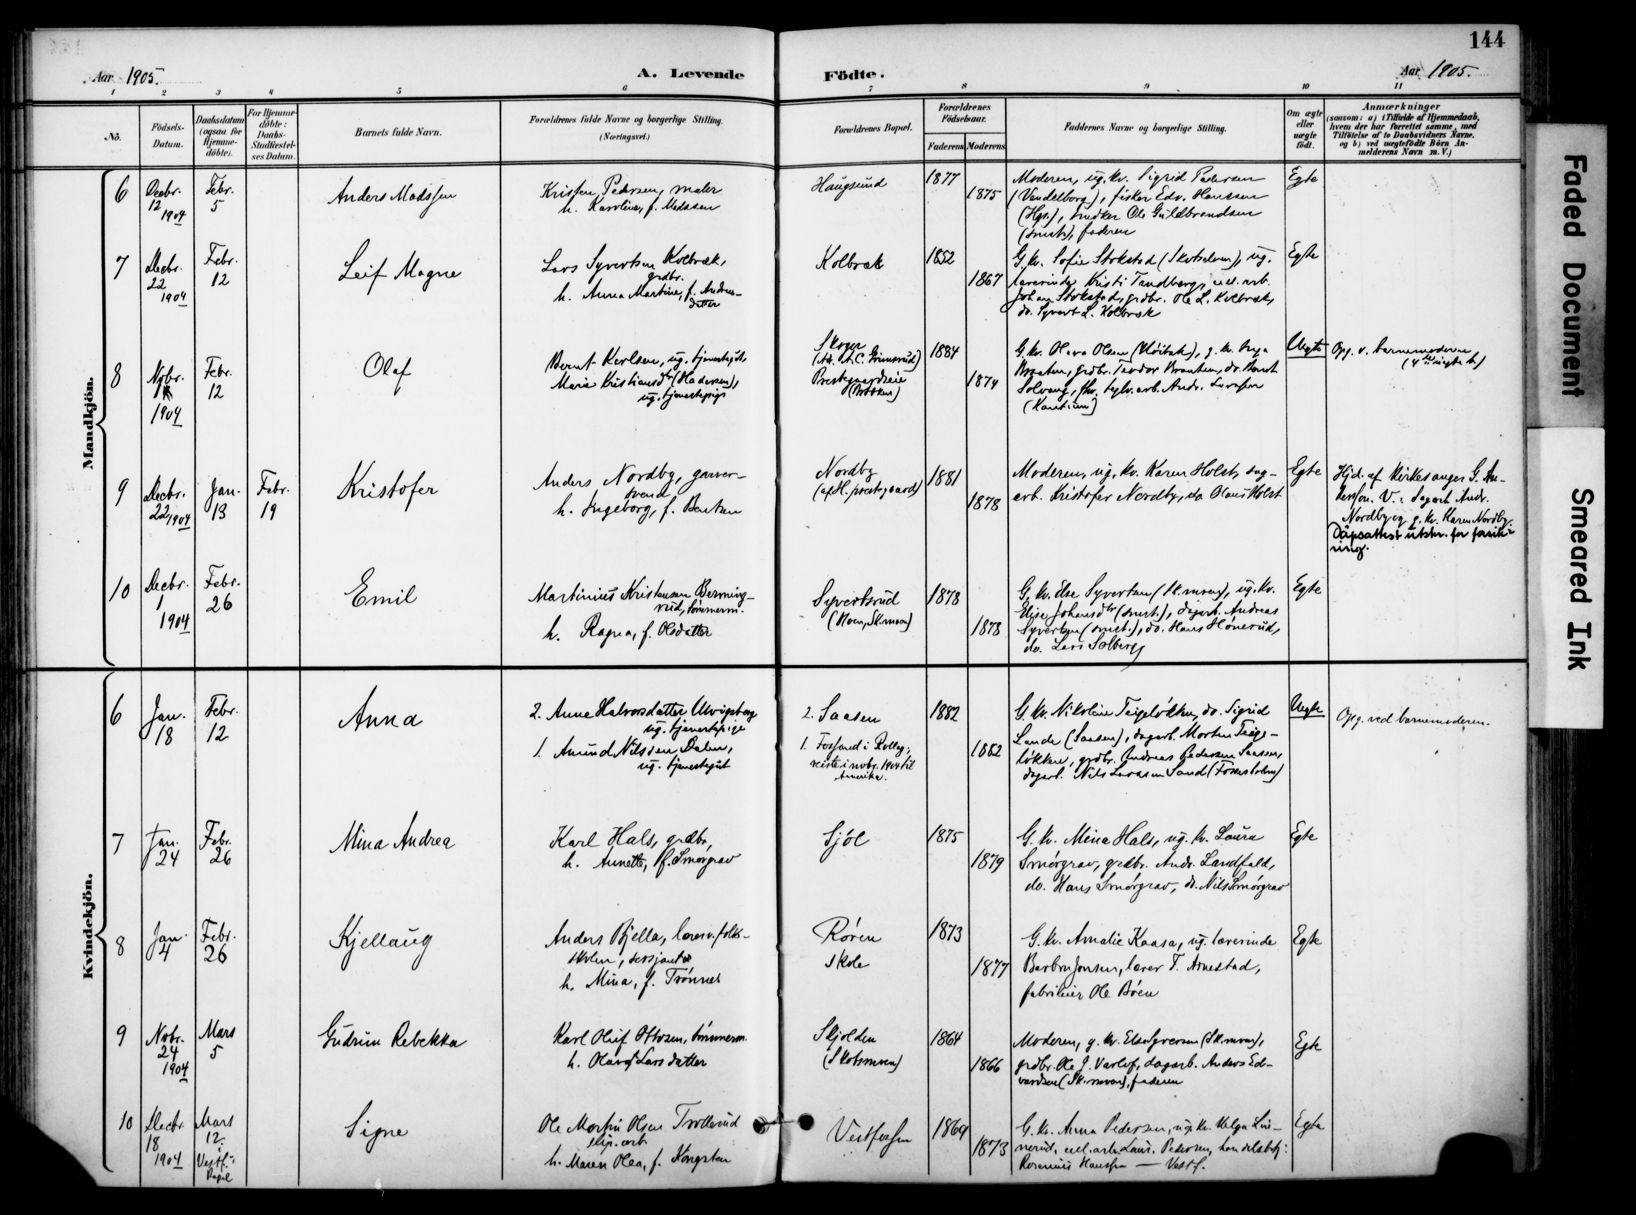 144
Aar 1905.
A. Levende
Fødte.
Aar 1905.
1 2 3 4 5 6 7 8 9 10 11
No.
Fødsels-
Datum.
Daabsdatum
(ogsaa for
Hjemme-
døbte).
For Hjemme-
døbte:
Daabs-
Stadfæstel-
ses Datum.
Barnets fulde Navn.
Forældrenes fulde Navne og borgerlige Stilling.
(Næringsvei.)
Forældrenes Bopæl.
Forældrenes
Fødselsaar.
Faderens
Moderens
Faddernes Navne og borgerlige Stilling.
Om ægte
eller
uægte
født.
Anmærkninger
(saasom: a) i Tilfælde af Hjemmedaab,
hvem der har forrettet samme, med
Tilføielse af to Daabsvidners Navne,
og b) ved uægtefødte Børn An-
melderens Navn m. V.)
Mandkjön.
6
Decbr.
12
1904
Febr.
5
Anders Madssen
Kristen Pedersen, maler
h. Karoline, f. Madssen
Haugsund
1877
1875
Moderen, ug. kv. Sigrid Pedersen
(Vendelborg), fisker Edv. Hanssen
(Hgs.), snedker Ole Guldbrandsen
faderen
Egte
7
Decbr.
22
1904
Febr.
12
Leif Magne
Lars Syvertsen Kolbræk,
grdbr.
h. Anna Martine, f. Andreas-
datter
Kolbræk
1852
1867
G. kv. Sofie Stokstad (Skotselven), ug.
lærerinde Kristi Tandberg, cell. arb.
Johan Stokstad, grdbr. Ole L. Kolbræk,
do. Syvert L. Kolbræk
Egte
8
Novbr.
1904
Febr.
12
Olaf
Bernt Karlsen, ug. tjenestegut
Marie Kristiansdtr (Hadersen),
ug. tjenestepige
Skoger
1884
1874
G. kv. Olava Olsen
Braaten, grdbr. Teodor Braaten, do. Bernt
Solvang
Uegte
Opg. v. barnemoderen
9
Decbr.
22 1904
Jan.
13
Febr.
19
Kristofer
Anders Nordby, garver-
svend
h. Ingeborg, f. Bentsen
Nordby
1881
1878
Moderen, ug. kv. Karen Holst, dag-
arb. Kristofer Nordby, do Olaus Holst
Egte
Hjd. af Kirkesanger G. An-
dersen. V.: dagarb. Andr.
Nordby og g. kv. Karen Nordby.
Dåpsattest utskr. for forsik-
ring.
10
Decbr.
1
1904
Febr.
26
Emil
Martinius Kristensen Berning-
rud, tømmerm.
h. Ragna, f. Olsdatter
Syvertsrud
1878
1878
G. kv. Else Syvertsen (Sk.moen), ug. kv.
Elise Johansdtr, dagarb. Andreas
Syvertsen, do. Hans Hønerud,
do. Lars Solberg
Egte
Kvindekjön.
6
Jan.
18
Febr.
12
Anna
2. Anne Halvorsdatter Ulvigsberg
ug. tjenestepige
1. Amund Nilssen Dalen,
ug. tjenestegut
2. Saasen
1. Fosland i Rollag;
reiste i novbr. 1904 til
Amerika.
1882
1882
G. kv. Nikoline Teigeløkken, do. Sigrid
Lande (Saasen), dagarb. Morten Teige-
løkken, grdbr. Andreas Pedersen Saasen,
dagarb. Nils Larssen Sand (Fossesholm)
Uegte
Opg. ved barnemoderen.
7
Jan.
24
Febr.
26
Mina Andrea
Karl Hals, grdbr,
h. Annette, f. Smørgrav
Sjøl
1875
1879
G. kv. Mina Hals, ug. kv. Laura
Smørgrav, grdbr. Andr. Landfald,
do. Hans Smørgrav, do. Nils Smørgrav
Egte
8
Jan.
4
Febr.
26
Kjellaug
Anders Bjella, lærer v. folke-
skolen, sersjant
h. Mina, f. Trønnes
Røren
Skole
1873
1877
G. kv. Amalie Kaasa, ug. lærerinde
Barbro Jonsen, lærer T. Arnestad,
fabrikeier Ole Bøen
Egte
9
Novbr.
24
1904
Mars
5
Gudrun Rebekka
Karl Oluf Ottosen, tømmerm.
h. Olava Larsdatter
Skjolden
(Skotsmoen)
1864
1866
Moderen, g. kv. Else Syversen (Sk.moen),
grdbr. Ole J. Varlo, dagarb. Anders Ed-
vardsen (Sk.moen), faderen
Egte
10
Decbr.
18
1904
Mars
12.
Vestf.
Kapel
Signe
Ole Martin Olsen Trotterud
slip. arb
h. Maren Olea, f. Kongsten
Vestfossen
1869
1873
G. kv. Anna Pedersen, ug. kv. Helga Lin-
nerud, cell. arb. Laur. Pedersen, handelsbetj.
Rosenius Hansen — Vestf.
Egte
Faded Document
Smeared Ink